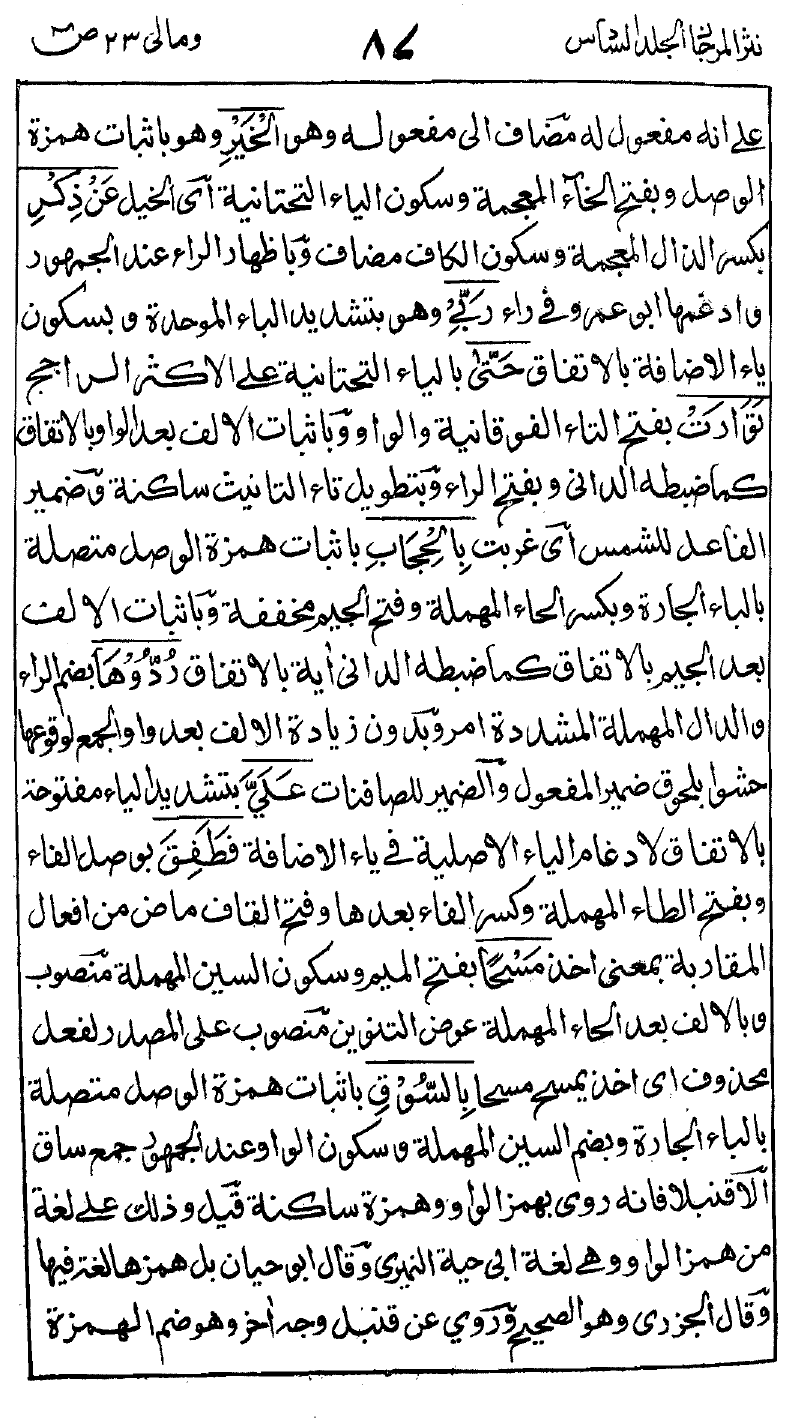 نثر المرجان الجلد السادس ٨٧ ومالی ٢٣ ص
علی انه مفعول له مضاف الی مفعوله وهو الْخَيْرِ وهو باثبات همزة
الوصل وبفتح الخآء المعجمة وسکون الیاء التحتانیة آی الخیل عَنْ ذِکْرِ
بکسر الذال المعجمة وسکون الکاف مضاف وباظهار الراء عند الجمهور
وادغمها ابو عمرو فی راء رَبِّيْ وهو بتشدید الباء الموحدة وبسکون
یاء الاضافة بالاتفاق حَتّٰی بالیاء التحتانیة علی الاکثر الراجح
تَوَارَتْ بفتح التاء الفوقانیة والواو وباثبات الالف بعد الواو بالاتفاق
کما ضبطه الدانی وبفتح الراء وبتطویل تاء التانیث ساکنة وضمیر
الفاعل للشمس آی غربت بِالْحِجَابِ باثبات همزة الوصل متصلة
بالباء الجارة وبکسر الحاء المهملة وفتح الجیم مخففة وباثبات الالف
بعد الجیم بالاتفاق کما ضبطه الدانی أیة بالاتفاق رُدُّوْهَا بضم الراء
والدال المهملة المشددة امر وبدون زیادة الالف بعد واو الجمع لوقوعها
حشوا بلحوق ضمیر المفعول والضمیر للصافنات عَلَيَّ بتشدید الیاء مفتوحة
بالاتفاق لادغام الیاء الاصلیة فی یاء الاضافة فَطَفِقَ بوصل الفاء
وبفتح الطاء المهملة وکسر الفاء بعدها وفتح القاف ماض من افعال
المقاربة بمعنی اخذ مَسْحًا بفتح المیم وسکون السین المهملة منصوب
وبالالف بعد الحاء المهملة عوض التنوین منصوب علی المصدر لفعل
محذوف ای اخذ یمسح مسحا بِالسُّوْقِ باثبات همزة الوصل متصلة
بالباء الجارة وبضم السین المهملة وسکون الواو عند الجمهور جمع ساق
الا قنبلا فانه روی بهمز الواو وهمزة ساکنة قیل وذلك علی لغة
من همز الواو وهی لغة ابی حیة النمیری وقال ابو حیان بل همزها لغة فیها
وقال الجزری وهو الصحیح وروی عن قنبل وجه اخر وهو ضم الهمزة